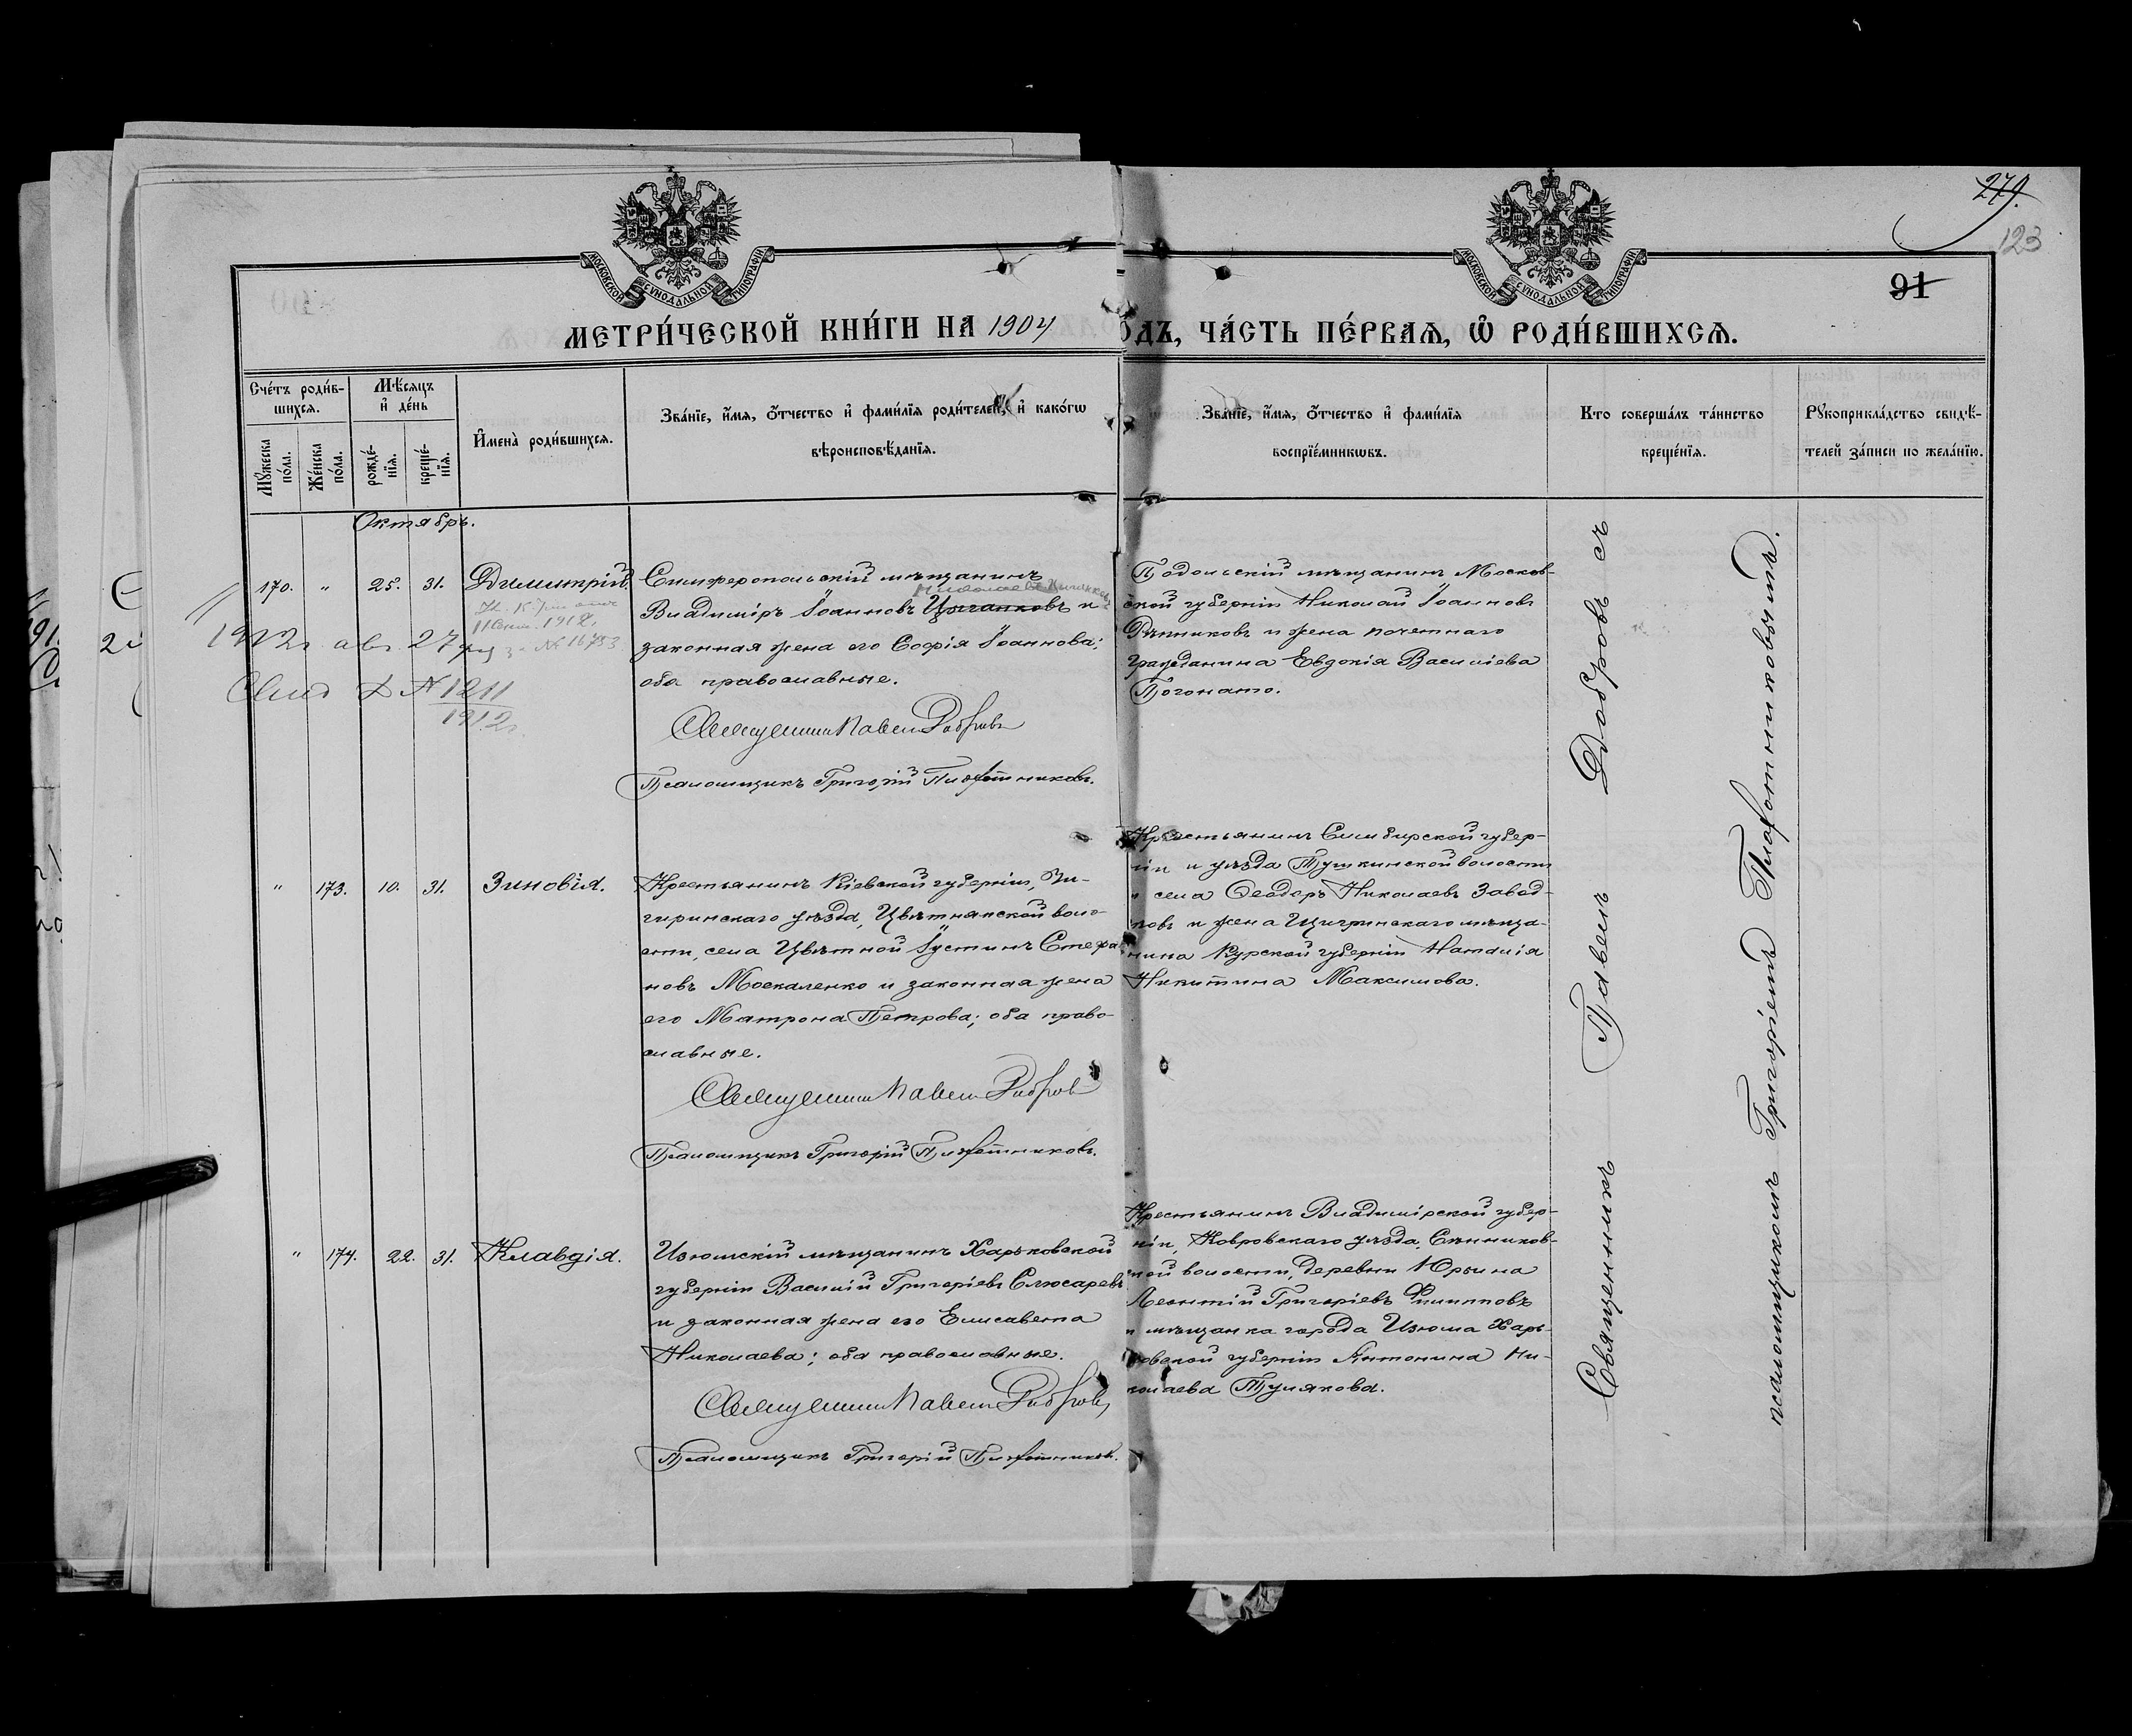 279.
123
91
МОСКОВСКОЙ СѴНОДАЛЬНОЙ ТИПОГРАФІИ
МОСКОВСКОЙ СѴНОДАЛЬНОЙ ТИПОГРАФІИ
МЕТРИ́ЧЕСКОЙ КНИ́ГИ НА 1904
ОДЪ, ЧА́СТЬ ПЕ́РВАѦ, Ѡ҆ РОДИ́ВШИХСѦ.
Сче́тъ роди́в-
шихсѧ.
Мѣ́сѧцъ
и҆ де́нь
Мꙋ́жеска
по́ла.
Же́нска
по́ла.
рожде́-
нїѧ.
креще́-
нїѧ.
И҆мена̀ роди́вшихсѧ.
Зва́нїе, и҆́мѧ, ѻ҆́тчество и҆ фами́лїѧ роди́телей, и҆ како́гѡ
вѣроисповѣ́данїѧ.
Зва́нїе, и҆́мѧ, ѻ҆́тчество и҆ фами́лїѧ
воспрїе́мникѡвъ.
Кто соверша́лъ та́инство
креще́нїѧ.
Рꙋкоприкла́дство свидѣ́-
телей за́писи по жела́нїю.
Октябрь.
170. " 25. 31. Димитрій.
1912г авг. 27
№ 16753
№ 1211
1912г.
Симферопольскій мѣщанинъ
Владиміръ Іоанновъ Цыганковъ и
законная жена его Софія Іоаннова;
оба православные.
Священникъ Павелъ Добровъ
Псаломщикъ Григорій Плотниковъ.
Подольскій мѣщанинъ Москов-
ской губерніи Николай Іоанновъ
Рѣпниковъ и жена почетнаго
гражданина Евдокія Василіева
Погонато.
" 173. 10. 31. Зиновія.
Крестьянинъ Кіевской губерніи, Чи-
гиринскаго уѣзда, Цвѣтнянской воло-
сти, села Цвѣтной Іустинъ Стефа
новъ Москаленко и законная жена
его Матрона Петрова; оба право-
славные.
Священникъ Павелъ Добровъ
Псаломщикъ Григорій Плотниковъ.
Крестьянинъ Симбирской губер-
ніи и уѣзда Тушкинской волости
и села Ѳеодоръ Николаевъ Завод-
новъ и жена Щигринскаго мѣща-
нина Курской губерніи Наталія
Никитина Максимова.
" 174. 22. 31. Клавдія.
Изюмскій мѣщанинъ Харьковской
губерніи Василій Григоріевъ Слюсаревъ
и законная жена его Елисавета
Николаева; оба православные.
Священникъ Павелъ Добровъ
Псаломщикъ Григорій Плотниковъ.
Крестьянинъ Владимірской губер-
ніи, Ковровскаго уѣзда, Сѣнников-
ской волости, деревни Юрьина
Леонтій Григоріевъ Филипповъ
и мѣщанка города Изюма Харь-
ковской губерніи Антонина Ни-
колаева Тулякова.
Священникъ Павелъ Добровъ съ
псаломщикомъ Григоріемъ Плотниковымъ.